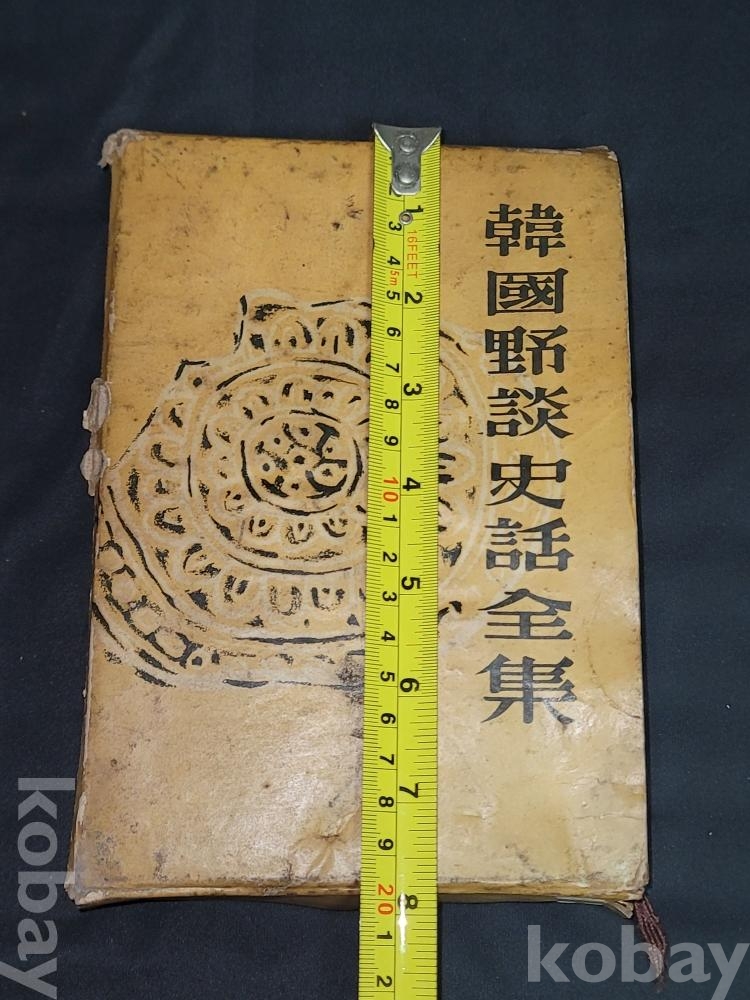 韓國野談史話全集
16FEET
5m
1
2
3
4
5
6
7
8
3
4
5
6
7
8
9
10
1
2
3
4
5
6
7
8
9
20
1
2
kobay
kobay